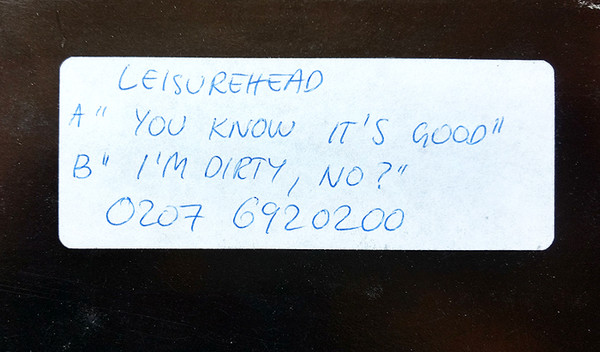 LEISUREHEAD
A" YOU KNOW IT'S GOOD"
B" I'M DIRTY, NO?"
0207 6920200